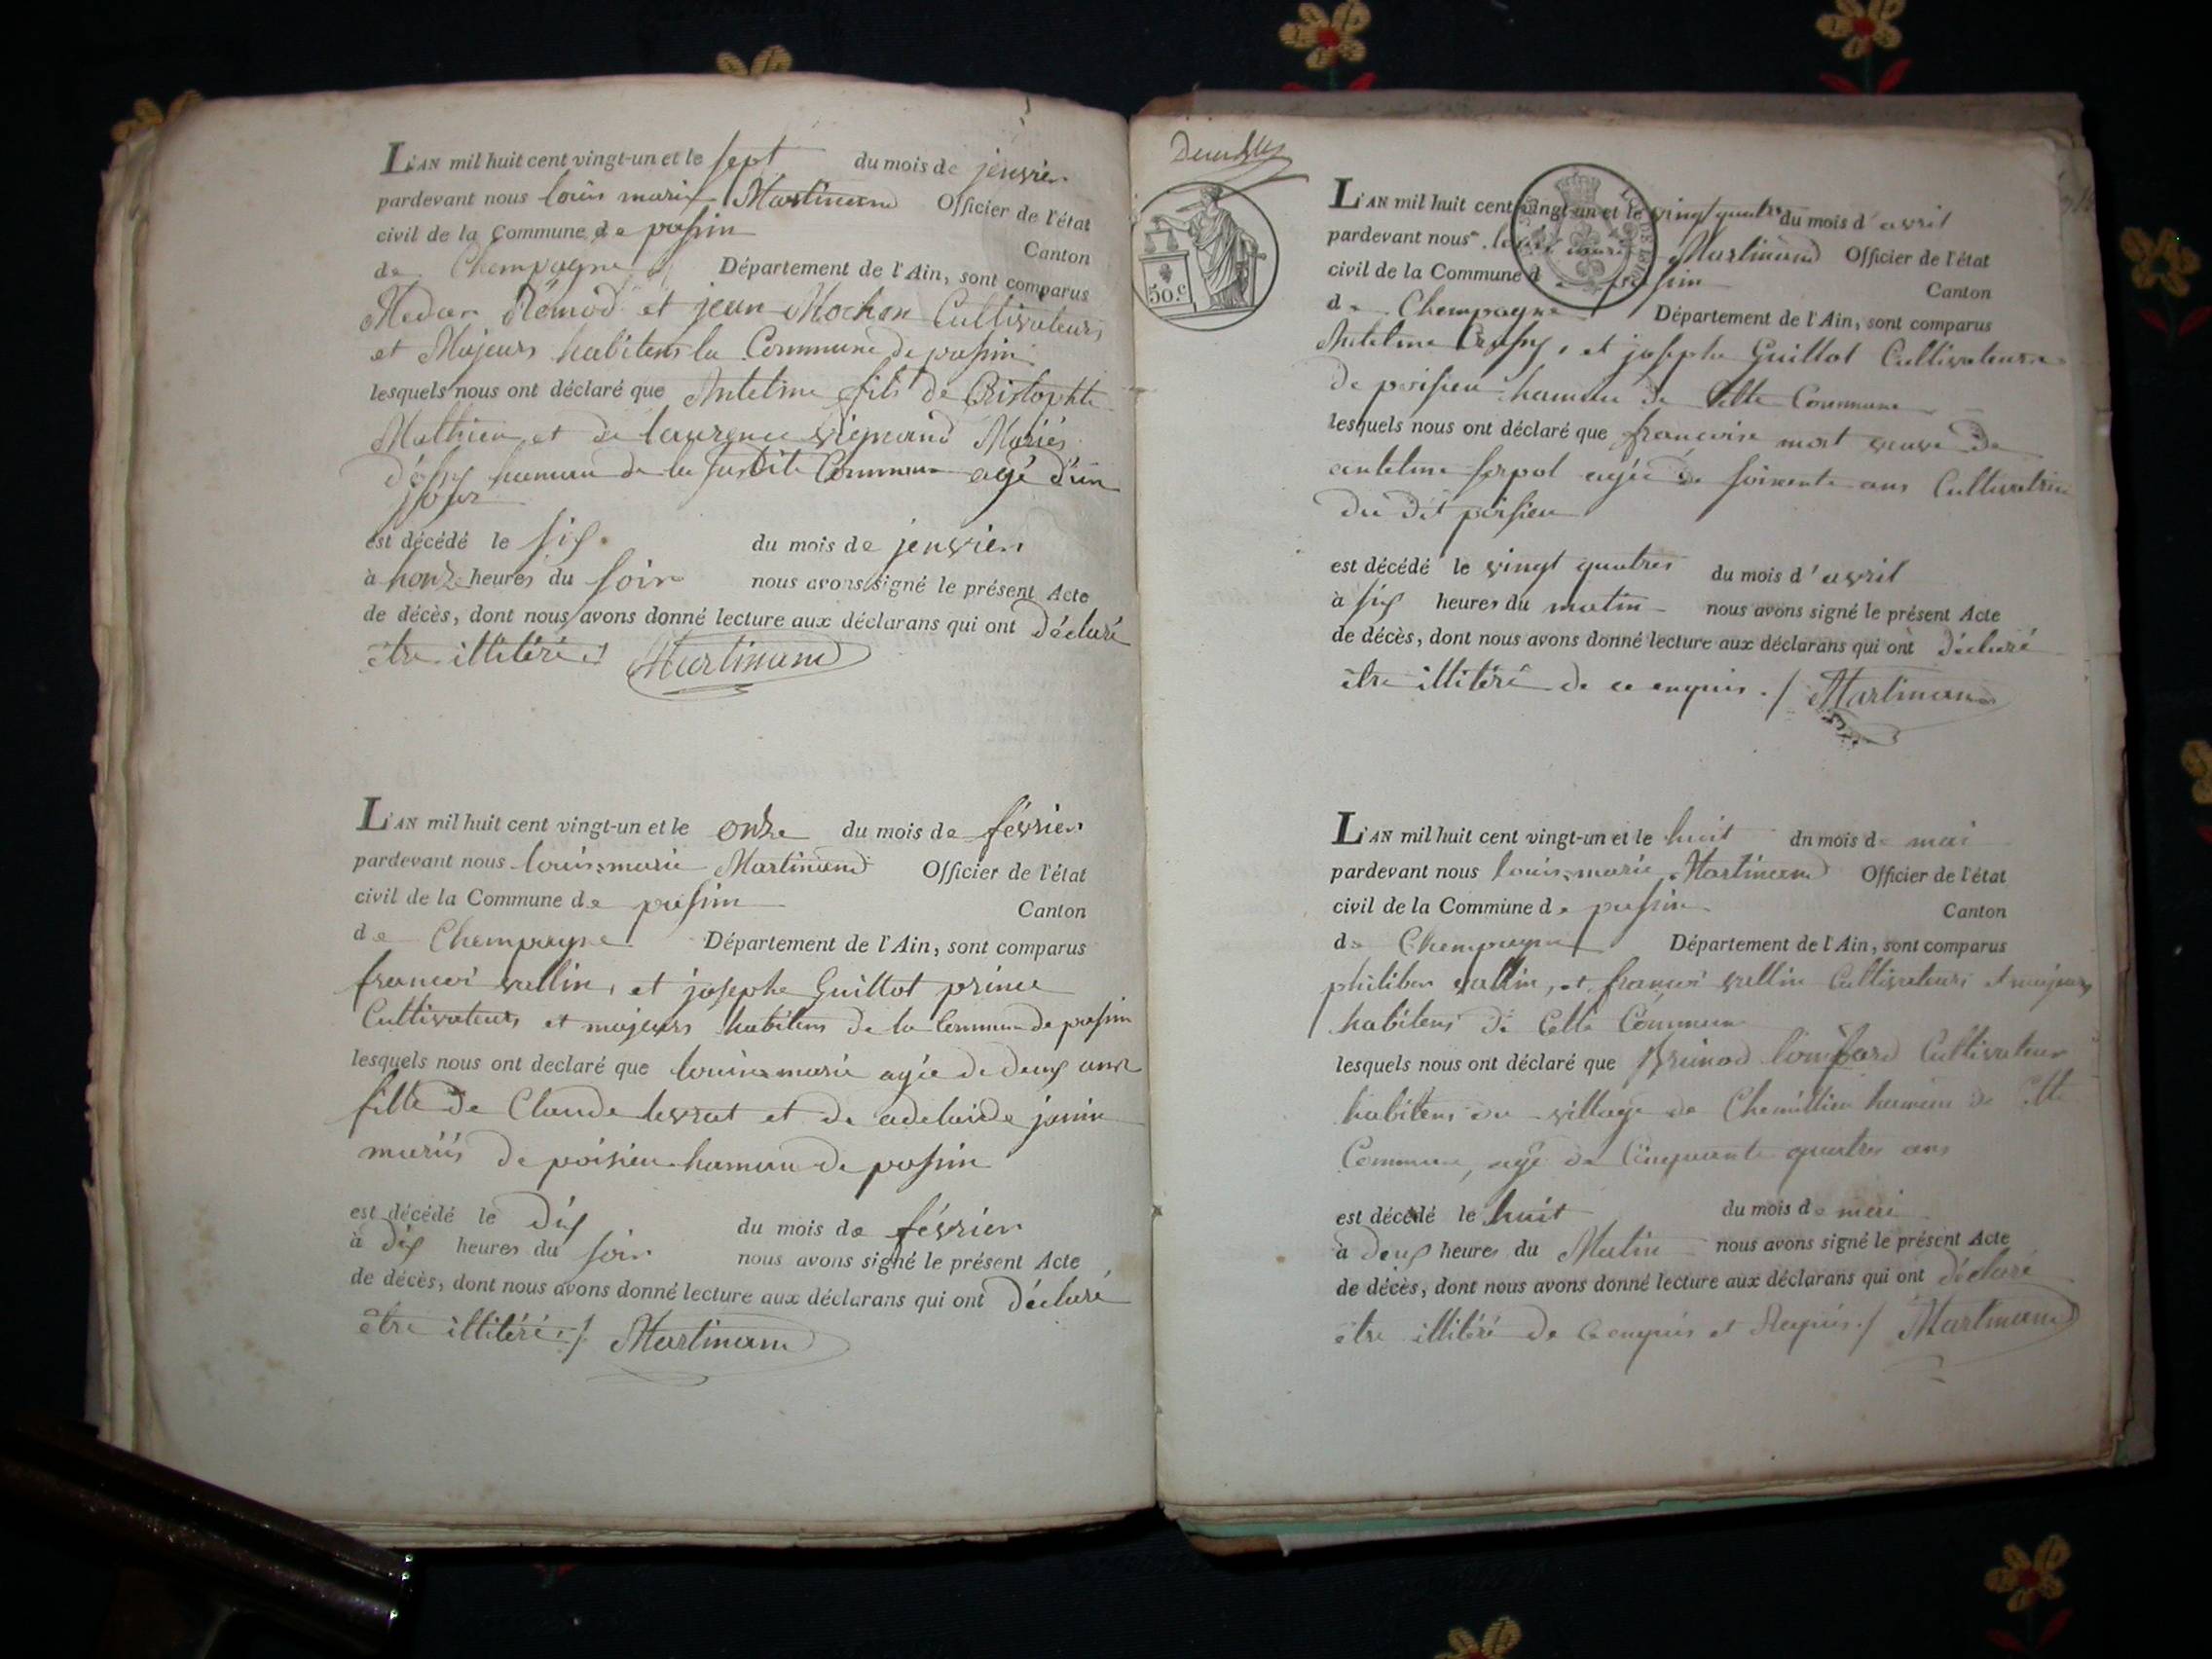 L'AN mil huit cent vingt-un et le sept du mois de jenvier
pardevant nous louis marie Martinand Officier de l'état
civil de la Commune de passin
Canton
de Chempagne Département de l'Ain, sont comparus
et jean Mochon Cultivateurs
et Majeurs habitens la Commune de passin
lesquels nous ont déclaré que Antelme fils de Cristophte
Mathieu et de laurence Mariés
hamau de la susdite Commune agé d'un
jour
est décédé le six du mois de jenvier
à honze heures du soir nous avons signé le présent Acte
de décès, dont nous avons donné lecture aux déclarans qui ont déclaré
être illitéré Martinand
L'AN mil huit cent vingt-un et le onze du mois de février
pardevant nous louis-marie Martinand Officier de l'état
civil de la Commune de passin
Canton
de Chempagne Département de l'Ain, sont comparus
françoi vallin, et josephe Guillot prince
Cultivateurs et majeurs habitens de la Commune de passin
lesquels nous ont declaré que louise marie agée de deux ans
fille de Claude levrat et de adelaide janin
mariés de poisieu hamau de passin
est décédé le dix du mois de février
à dix heures du soir nous avons signé le présent Acte
de décès, dont nous avons donné lecture aux déclarans qui ont déclaré
être illitéré ./ Martinand
50.c
L'AN mil huit cent vingt-un et le vingt quatre du mois d'avril
pardevant nous louis marie Martinand Officier de l'état
civil de la Commune de passin
Canton
de Chempagne Département de l'Ain, sont comparus
Antelme et josephe Guillot Cultivateurs
de poisieu hamau de Cette Commune
lesquels nous ont déclaré que francoise mort veuve de
antelme serpol agée de soixente ans Cultivatrice
du dit poisieu
est décédé le vingt quatres du mois d'avril
à six heures du matin nous avons signé le présent Acte
de décès, dont nous avons donné lecture aux déclarans qui ont déclaré
être illitéré de ce enquis ./ Martinand
L'AN mil huit cent vingt-un et le huit dn mois de mai
pardevant nous louis-marie Martinand Officier de l'état
civil de la Commune de passin
Canton
de Chempagne Département de l'Ain, sont comparus
philiber vallin, et françoi vallin Cultivateurs et majeurs
habitens de Cette Commune
lesquels nous ont déclaré que Cultivateur
habitens du village de Chemillieu hamau de Cette
Commune, agé de Cinquante quatres ans
est décédé le huit du mois de mai
à deux heures du Matin nous avons signé le présent Acte
de décès, dont nous avons donné lecture aux déclarans qui ont déclaré
être illitéré de ce enquis et Requis ./ Martinand